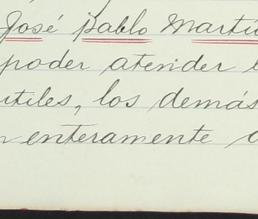 José Pablo Martí
poder atender
utiles, los demás
enteramente